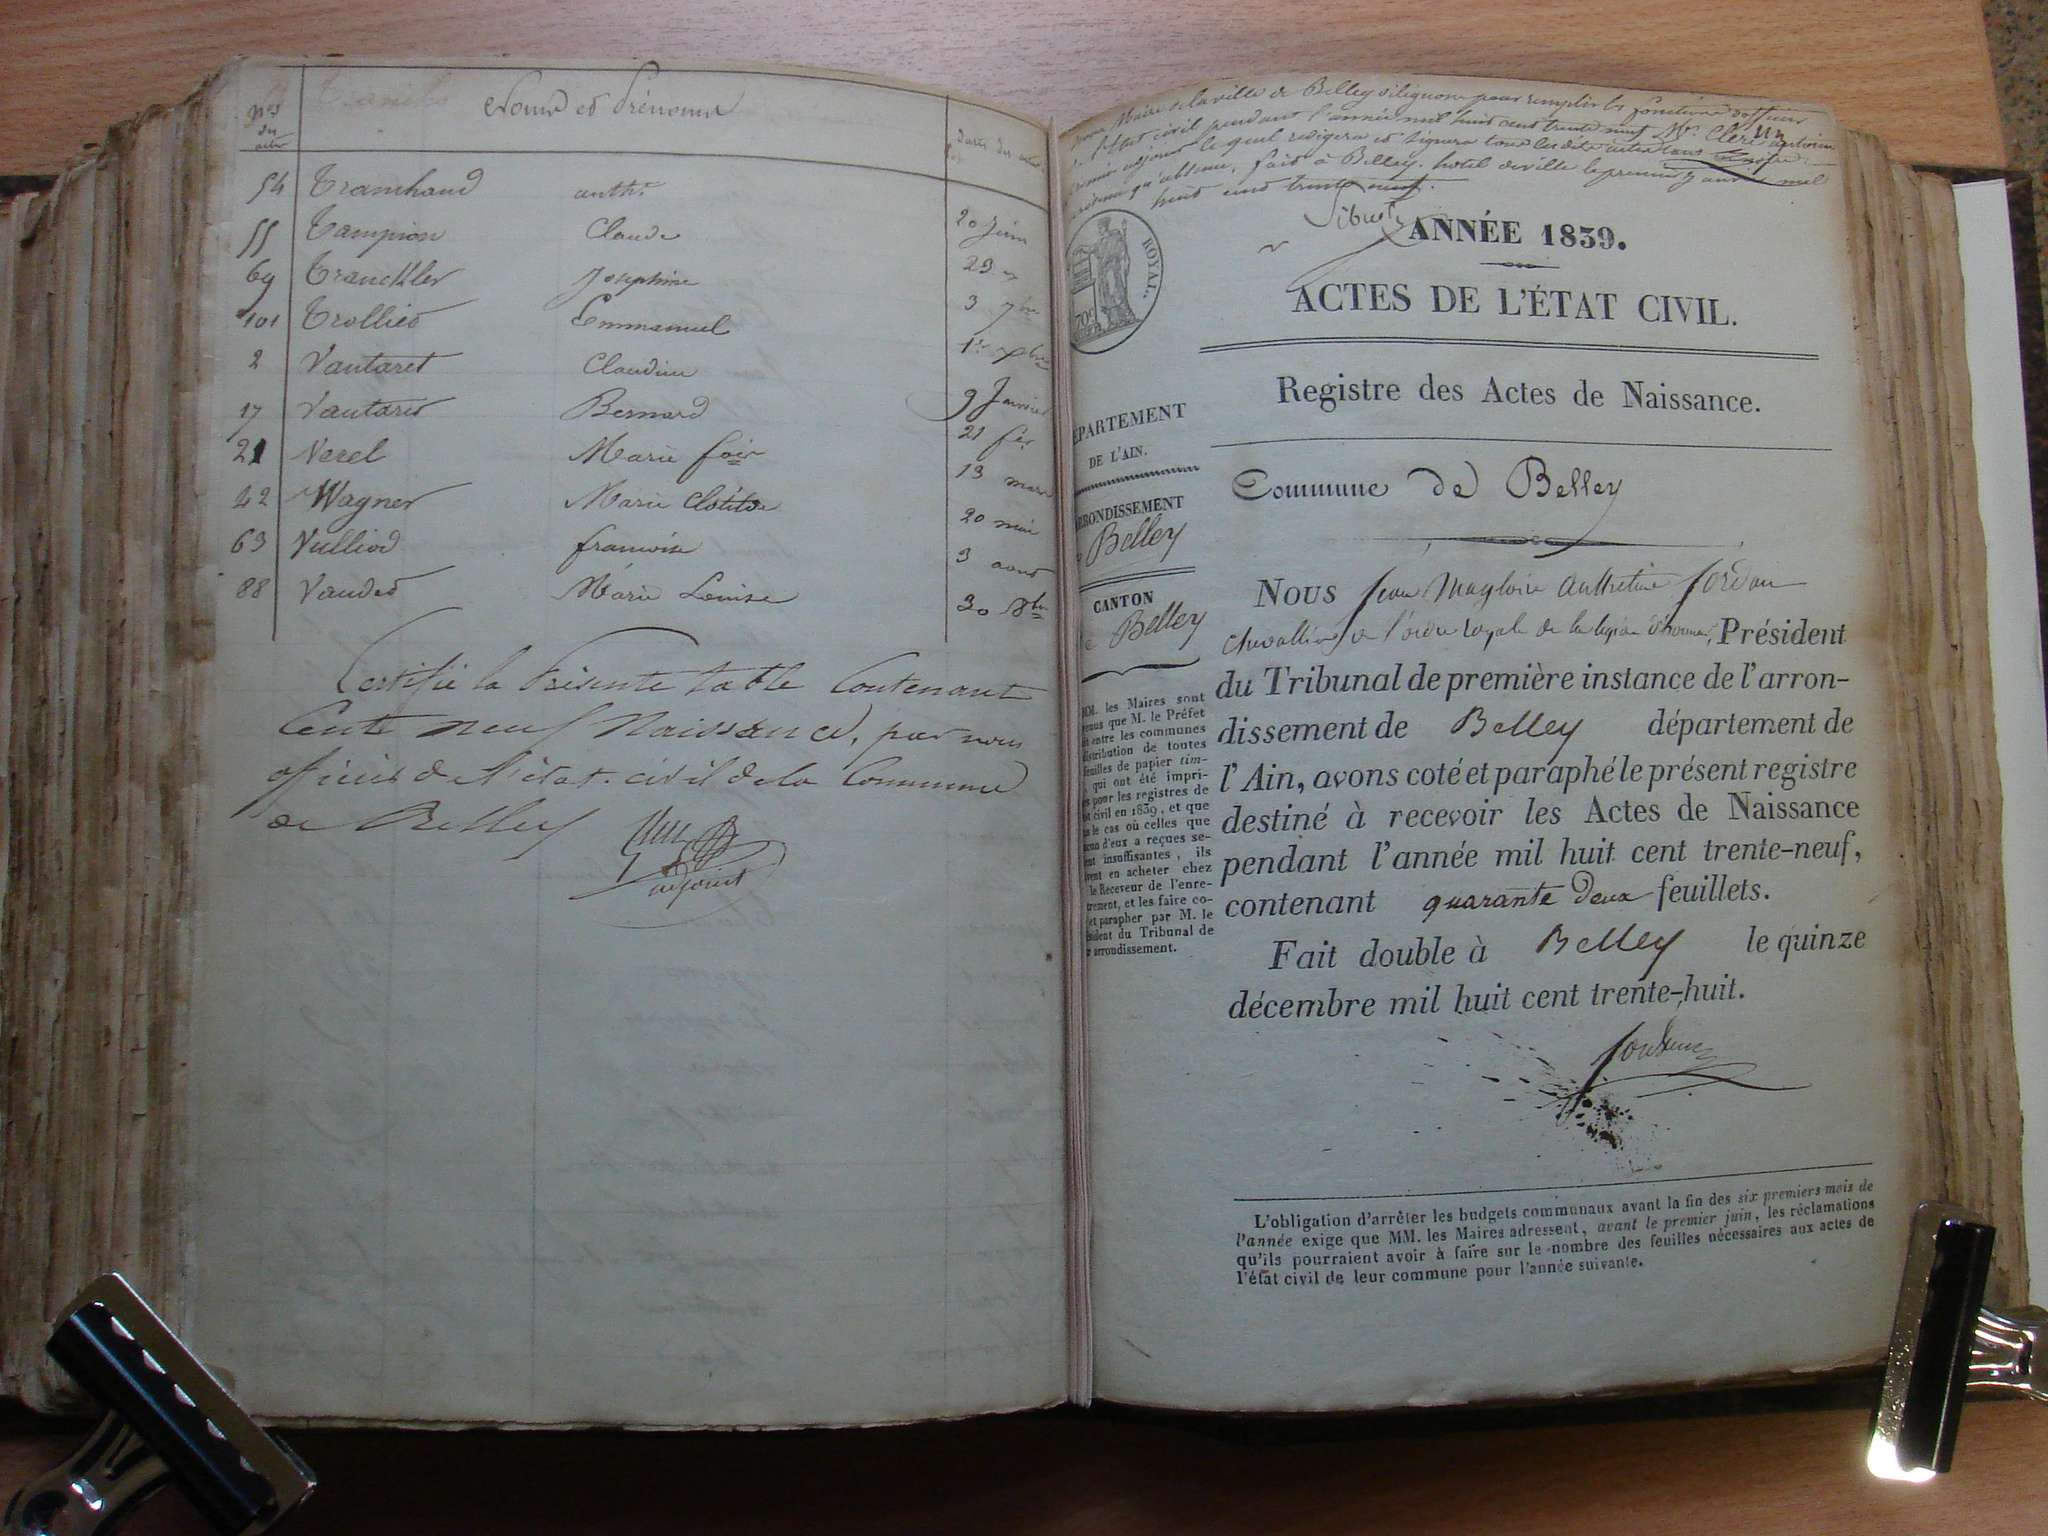 Nos des actes
Noms et Prénoms
Dates des actes
54 Tramchaud anthe.
55 Tampion Claude 20 Juin
69 Tranckler Josephine 29 "
101 Trollied Emmanuel 3 7bre
2 Vautaret Claudine 1er Xbre
17 Vautared Bernard 9 Janvier
21 Verel Marie foise 21 fer
42 Wagner Marie Clotilde 13 mars
63 Vulliod francoise 20 mai
88 Vauded Marie Louise 3 aout
30 8bre
Certifié la Présente table Contenant
Cente neuf Naissances, par nous
officier de l'état civil de la Commune
de Belley
adjoint
Maire de la ville de Belley désignons pour remplir les fonctions d'officier
de l'État civil pendant l'année mil huit cent trente neuf Mr. Clerc antoine
adjoint lequel redigera et signera tous les dits actes
qu'absence, fait à Belley hotel de ville le premier janvier mil
huit cent trente neuf.
Sibuet
ROYAL.
70c
ANNÉE 1839.
ACTES DE L'ÉTAT CIVIL.
Registre des Actes de Naissance.
Commune de Belley
ÉPARTEMENT
DE L'AIN.
RRONDISSEMENT
Belley
CANTON
Belley
MM. les Maires sont
enus que M. le Préfet
entre les communes
distribution de toutes
feuilles de papier tim-
qui ont été impri-
s pour les registres de
civil en 1839, et que
le cas où celles que
cun d'eux a reçues se-
ent insuffisantes, ils
vent en acheter chez
le Receveur de l'enre-
trement, et les faire co-
et parapher par M. le
sident du Tribunal de
r arrondissement.
NOUS Jean Magloire Anthelme Jordan
Chevallier de l'ordre royale de la légion d'honneur, Président
du Tribunal de première instance de l'arron-
dissement de Belley département de
l'Ain, avons coté et paraphé le présent registre
destiné à recevoir les Actes de Naissance
pendant l'année mil huit cent trente-neuf,
contenant quarante deux feuillets.
Fait double à Belley le quinze
décembre mil huit cent trente-huit.
Jordan
L'obligation d'arrêter les budgets communaux avant la fin des six premiers mois de
l'année exige que MM. les Maires adressent, avant le premier juin, les réclamations
qu'ils pourraient avoir à faire sur le nombre des feuilles nécessaires aux actes de
l'état civil de leur commune pour l'année suivante.